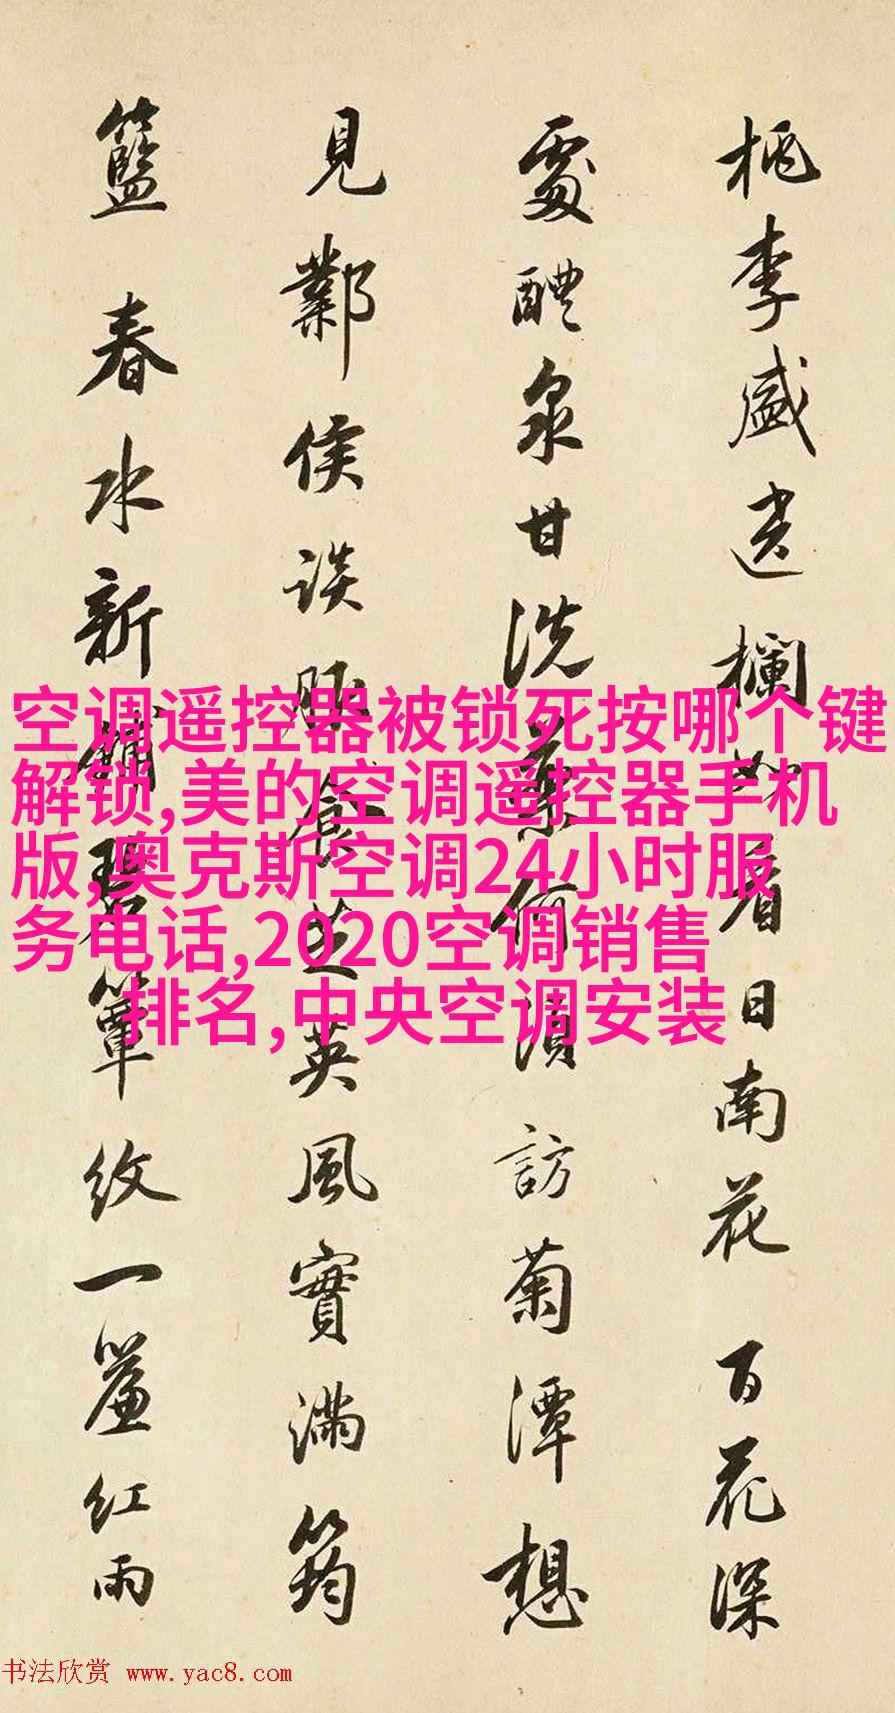 桃李盛欄看日南花百花深
處醴泉甘洗藥何須訪菊潭想
見鄴侯談食芝英風實滿筠
籃春水新鋪碧簟紋一簾紅雨
空调遥控器被锁死按哪个键
解锁,美的空调遥控器手机
版,奥克斯空调24小时服
务电话,2020空调销售
排名,中央空调安装
书法欣赏 www.yac8.com